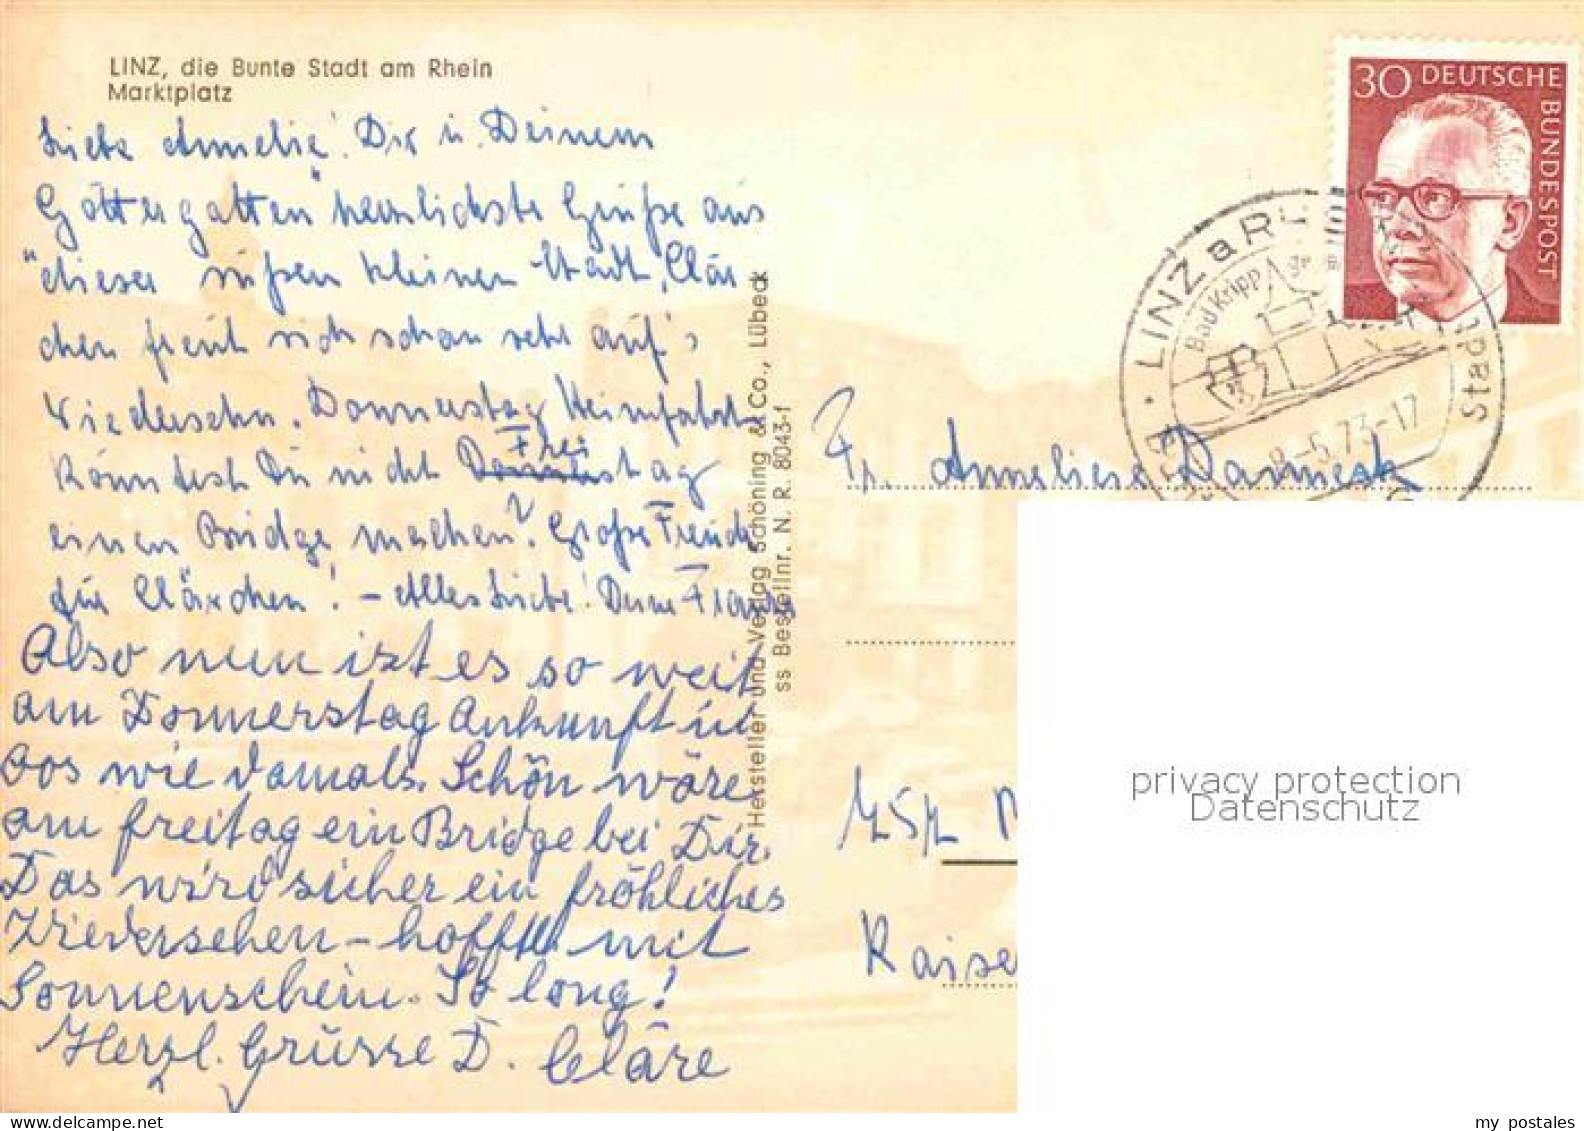 LINZ, die Bunte Stadt am Rhein
Marktplatz
Liebe Annelie! Dir u. Deinem
"Göttergatten" herzlichste Grüße aus
dieser süßen kleinen Stadt, Clär
chen freut sich schon sehr auf's
Wiedersehn. Donnerstag Heimfahrt
Könntest Du nicht Frei
tag
einen Bridge machen? Große Freude
für Clärchen! – Alles Liebe! Deine
Also nun ist es so weit
am Donnerstag Ankunft in
wie damals. Schön wäre
am freitag ein Bridge bei Dir.
Das wird sicher ein fröhliches
Wiedersehen – hofftl. mit
Sonnenschein. So long!
Herzl. Grüsse D. Cläre
Hersteller und Verlag Schöning & Co., Lübeck
ss Bestellnr. N. R. 8043-1
30 DEUTSCHE
BUNDESPOST
LINZ a RH
Bad Kripp
Stadt
8.-5.73-17
Fr. Anneliese
privacy protection
Datenschutz
Kaise
my postales